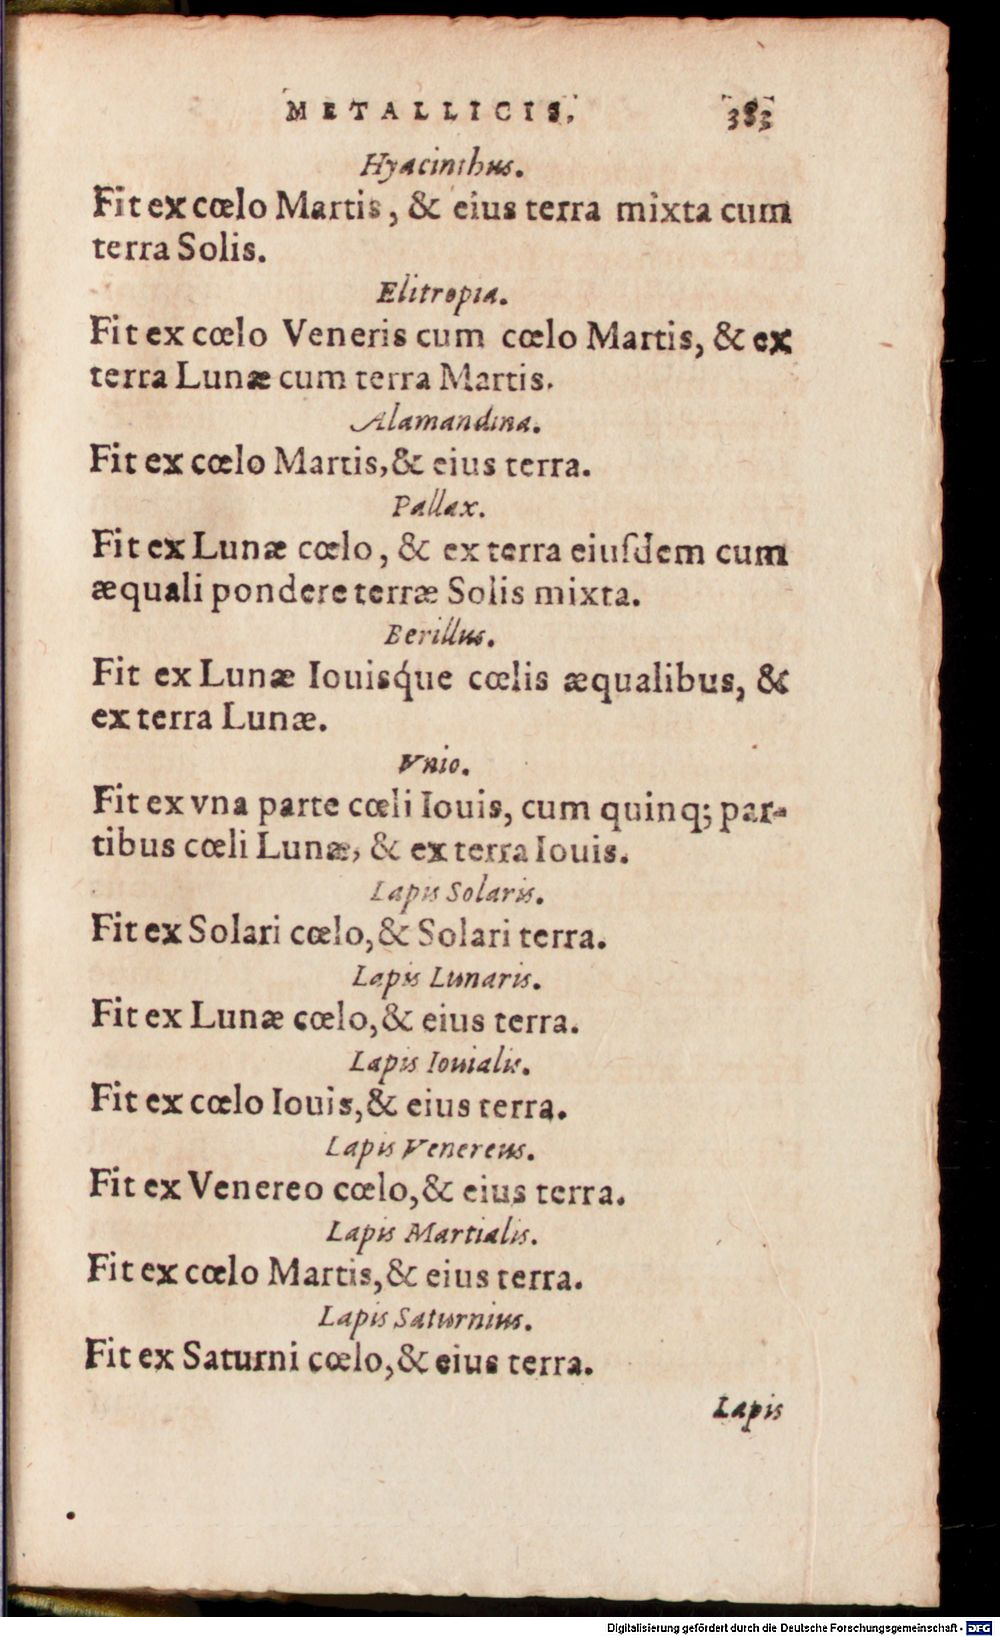 METALLICIS, 383
Hyacinthus.
Fit ex cœlo Martis, & eius terra mixta cum
terra Solis.
Elitropia.
Fit ex cœlo Veneris cum cœlo Martis, & ex
terra Lunæ cum terra Martis.
Alamandina.
Fit ex cœlo Martis, & eius terra.
Pallax.
Fit ex Lunæ cœlo, & ex terra eiuſdem cum
æquali pondere terræ Solis mixta.
Berillus.
Fit ex Lunæ Iouisq́ue cœlis æqualibus, &
ex terra Lunæ.
Vnio.
Fit ex vna parte cœli Iouis, cum quinq; par-
tibus cœli Lunæ, & ex terra Iouis.
Lapis Solaris.
Fit ex Solari cœlo, & Solari terra.
Lapis Lunaris.
Fit ex Lunæ cœlo, & eius terra.
Lapis Iouialis.
Fit ex cœlo Iouis, & eius terra.
Lapis Venereus.
Fit ex Venereo cœlo, & eius terra.
Lapis Martialis.
Fit ex cœlo Martis, & eius terra.
Lapis Saturnius.
Fit ex Saturni cœlo, & eius terra.
Lapis
Digitalisierung gefördert durch die Deutsche Forschungsgemeinschaft - DFG